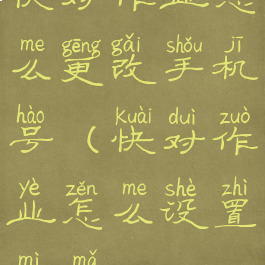 快对作业怎
me gēng gǎi shǒu jī
么更改手机
hào kuài duì zuò
号（快对作
yè zěn me shè zhì
业怎么设置
mì mǎ